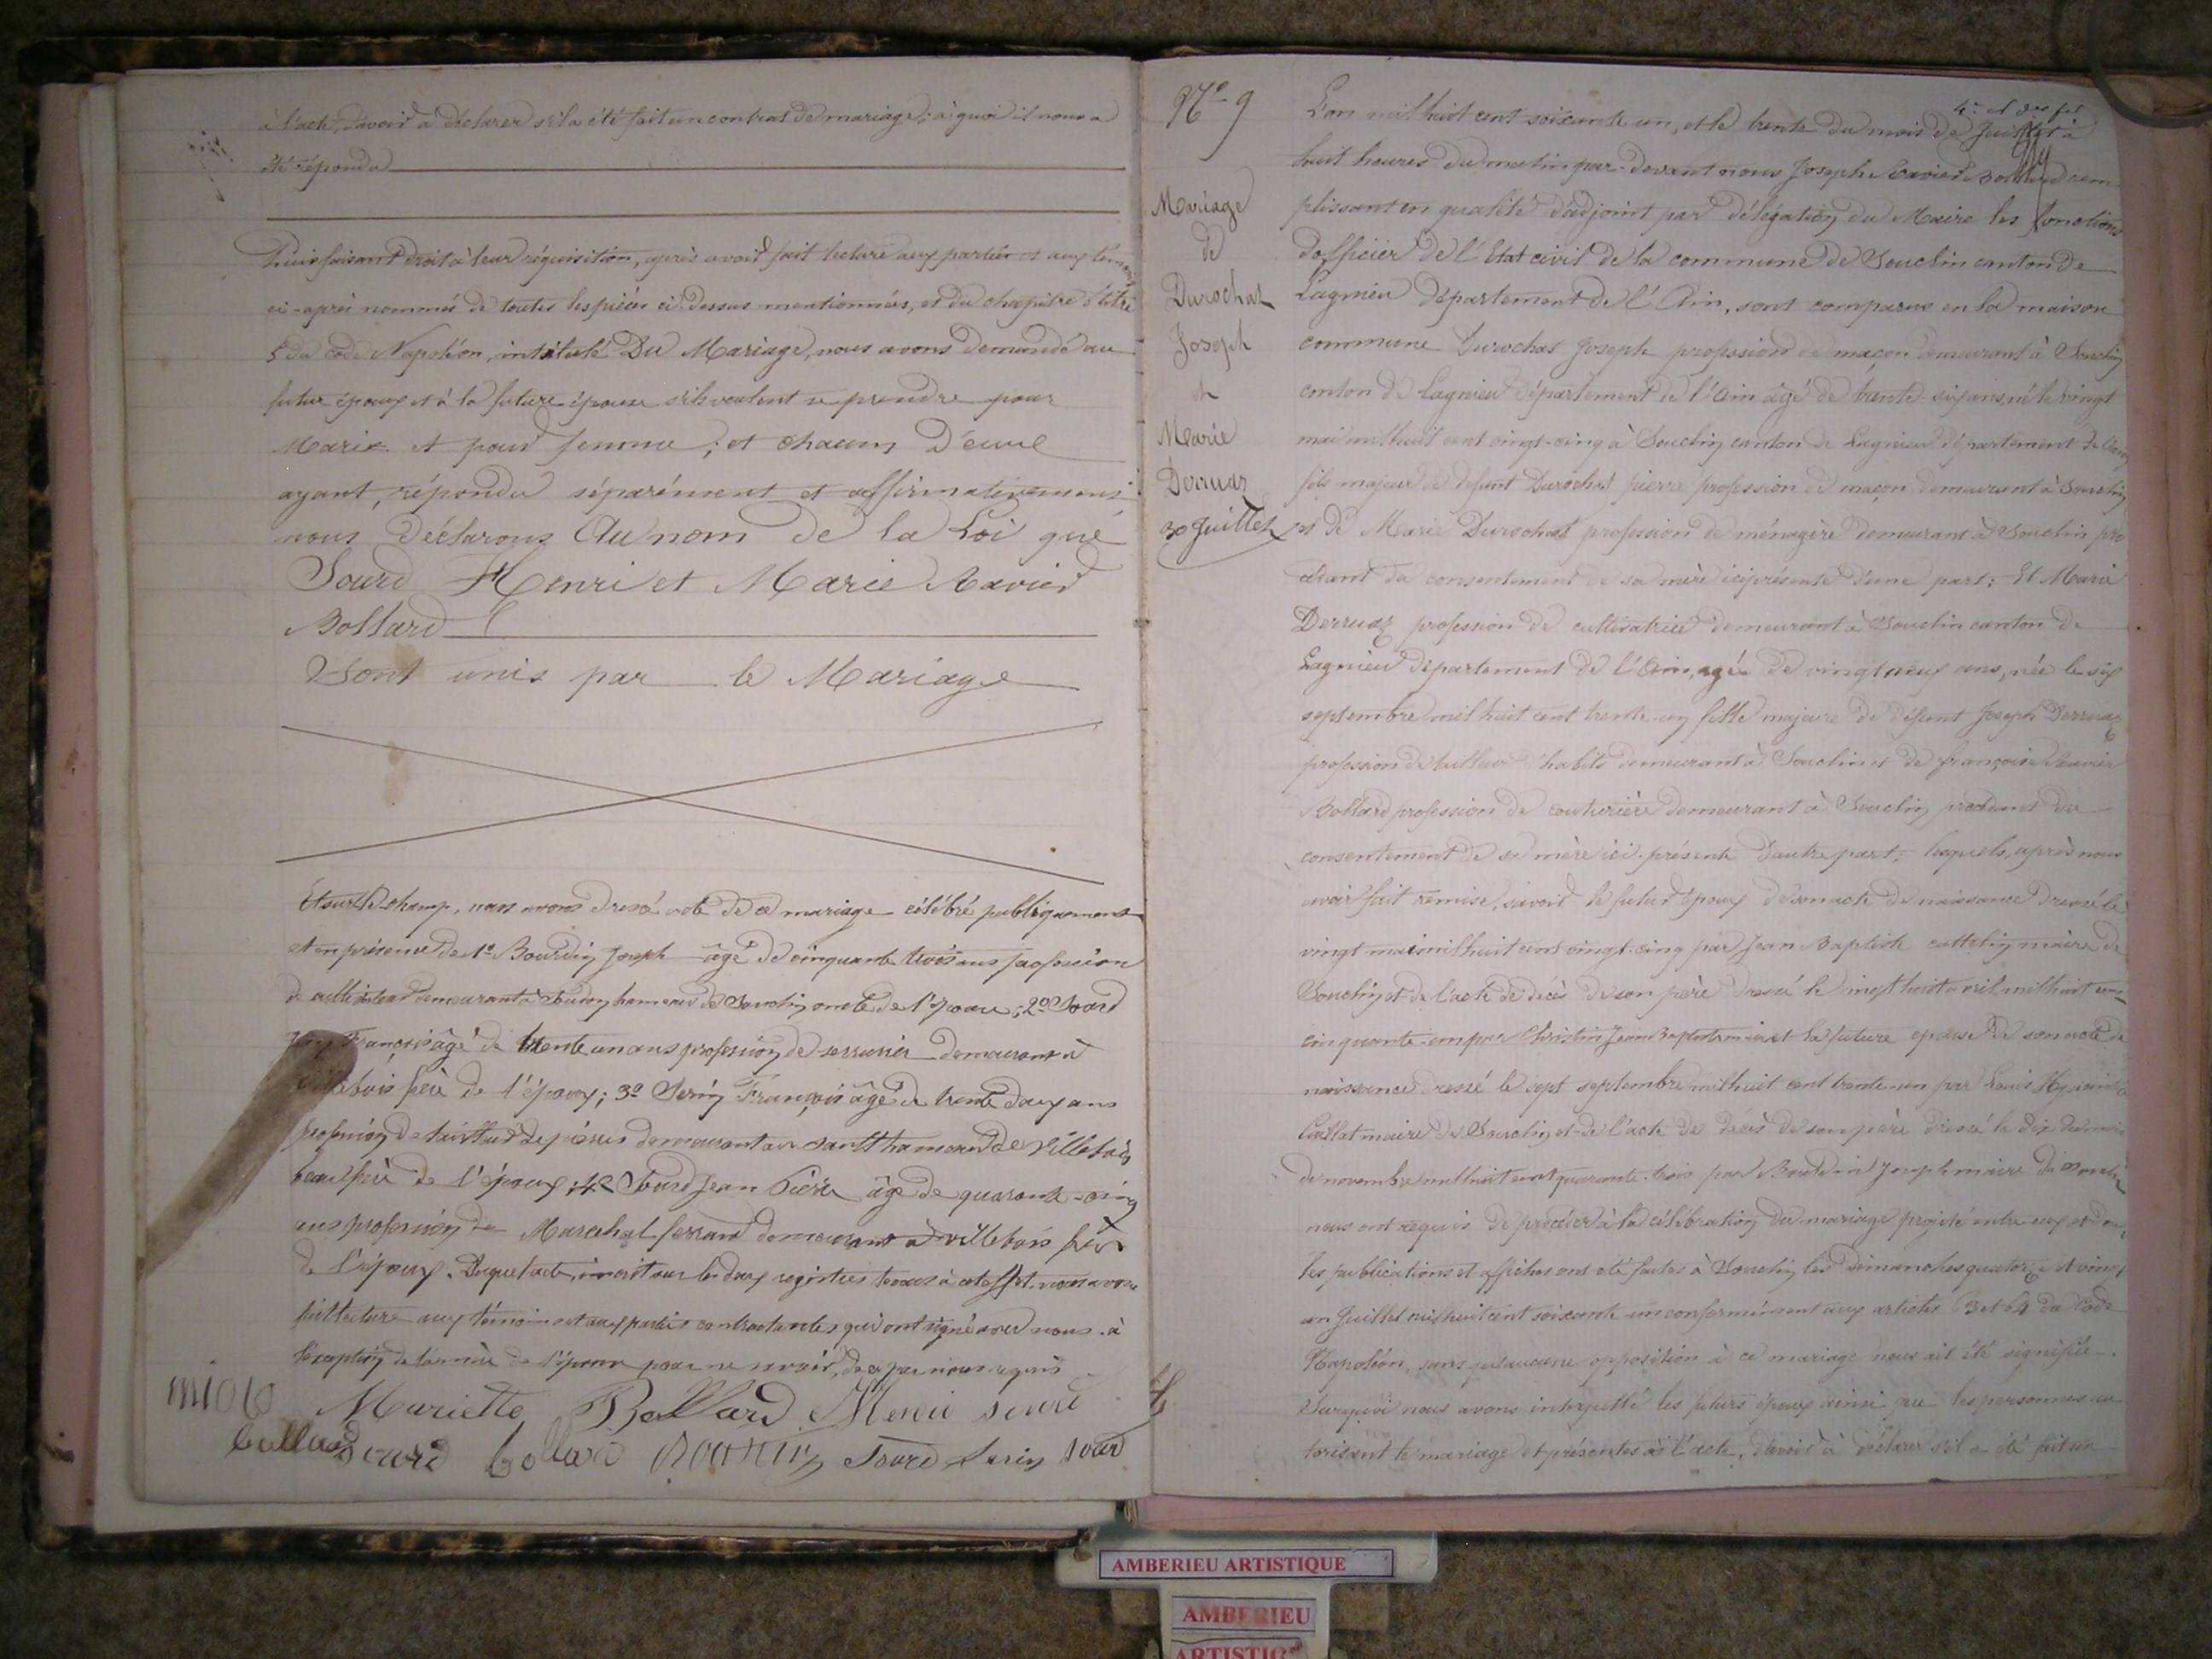 à l'acte, d'avoir à déclarer s'il a été fait un contrat de mariage; à quoi il nous a
été répondu
Puis faisant droit à leur réquisition, après avoir fait lecture aux parties et aux témoins
ci-après nommés de toutes les pièces ci-dessus mentionnées, et du chapitre 6 titre
5 du code Napoléon, intitulé Du Mariage, nous avons demandé au
futur époux et à la future épouse s'ils veulent se prendre pour
Mari et pour femme; et chacun D'eux
ayant répondu séparément et affirmativement
nous Déclarons Au nom de la Loi que
Sourd Henri et Marie Ravier
Bollard
Sont unis par le Mariage
Et sur le champ, nous avons dressé acte de ce mariage célébré publiquement
et en présence de 1º Bourdin Joseph âgé de cinquante trois ans profession
de cultivateur demeurant à Soudon hameau de Souclin oncle de l'épouse; 2º Sourd
François âgé de trente un ans profession de serrurier demeurant à
Villebois frère de l'époux; 3º Serin François âgé de trente deux ans
profession de tailleur de pierres demeurant au Sault hameau de Villebois
beau frère de l'époux; 4º Sourd Jean Pierre âgé de quarante-cinq
ans profession de Marechal ferrant demeurant à Villebois frère
de l'époux. Duquel acte, inscrit sur les deux registres tenus à cet effet, nous avons
fait lecture aux témoins et aux parties contractantes qui ont signé avec nous à
l'exception de la mère de l'épouse pour ne savoir, de ce par nous requis
Mariette Bollard Henri sourd
bollard Sourd bollard Bourdin Sourd Serin sourd
Nº 9
Mariage
de
Durochat
Joseph
et
Marie
Derruaz
30 Juillet
L'an mil huit cent soixante un, et le trente du mois de Juillet à
huit heures du matin par-devant nous Joseph Ravier Bollard rem
plissant en qualité d'adjoint par délégation du Maire les fonctions
d'officier de l'Etat civil de la commune de Souclin canton de
Lagnieu département de l'Ain, sont comparus en la maison
commune Durochat Joseph profession de maçon demeurant à Souclin
canton de Lagnieu département de l'Ain âgé de trente-six ans, né le vingt
mai mil huit cent vingt-cinq à Souclin canton de Lagnieu département de l'Ain
fils majeur de defunt Durochat pierre profession de maçon demeurant à Souclin
et de Marie Durochat profession de ménagère demeurant à Souclin pro
cédant du consentement de sa mère ici présente d'une part: Et Marie
Derruaz profession de cultivatrice demeurant à Souclin canton de
Lagnieu département de l'Ain, agée de vingt neuf ans, née le six
septembre mil huit cent trente-un fille majeure de défunt Joseph Derruaz
profession de tailleur d'habits demeurant à Souclin et de françoise Ravier
Bollard profession de couturière demeurant à Souclin procédant du
consentement de sa mère ici présente d'autre part; lesquels, après nous
avoir fait remise, savoir le futur époux de son acte de naissance dressé le
vingt mai mil huit cent vingt-cinq par Jean Baptiste cattelin maire de
Souclin et de l'acte de décès de son père dressé le vingt huit avril mil huit cent
cinquante-un par Christin Jean Baptiste maire et la future epouse de son acte de
naissance dressé le sept septembre mil huit cent trente-un par Louis
maire de Souclin et de l'acte de décès de son père dressé le dix du mois
de novembre mil huit cent quarante-trois par Bourdin Joseph maire de Souclin
nous ont requis de procéder à la célébration du mariage projeté entre eux et dont
les publications et affiches ont été faites à Souclin les Dimanches quatorze et vingt
un Juillet mil huit cent soixante-un conformément aux articles 63 et 64 du Code
Napoléon, sans qu'aucune opposition à ce mariage nous ait été signifiée.
Surquoi nous avons interpellé les futurs époux ainsi que les personnes au
torisant le mariage et présentes à l'acte, d'avoir à déclarer s'il a été fait un
AMBERIEU ARTISTIQUE
AMBERIEU